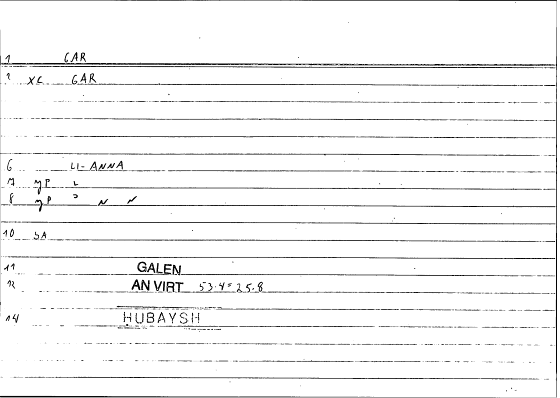 1 GAR
2 XC GAR
6 LI-ANNA
7 MP L
8 MP N N
10 SA
11 GALEN
12 AN VIRT 53.4=25.8
14 HUBAYSH